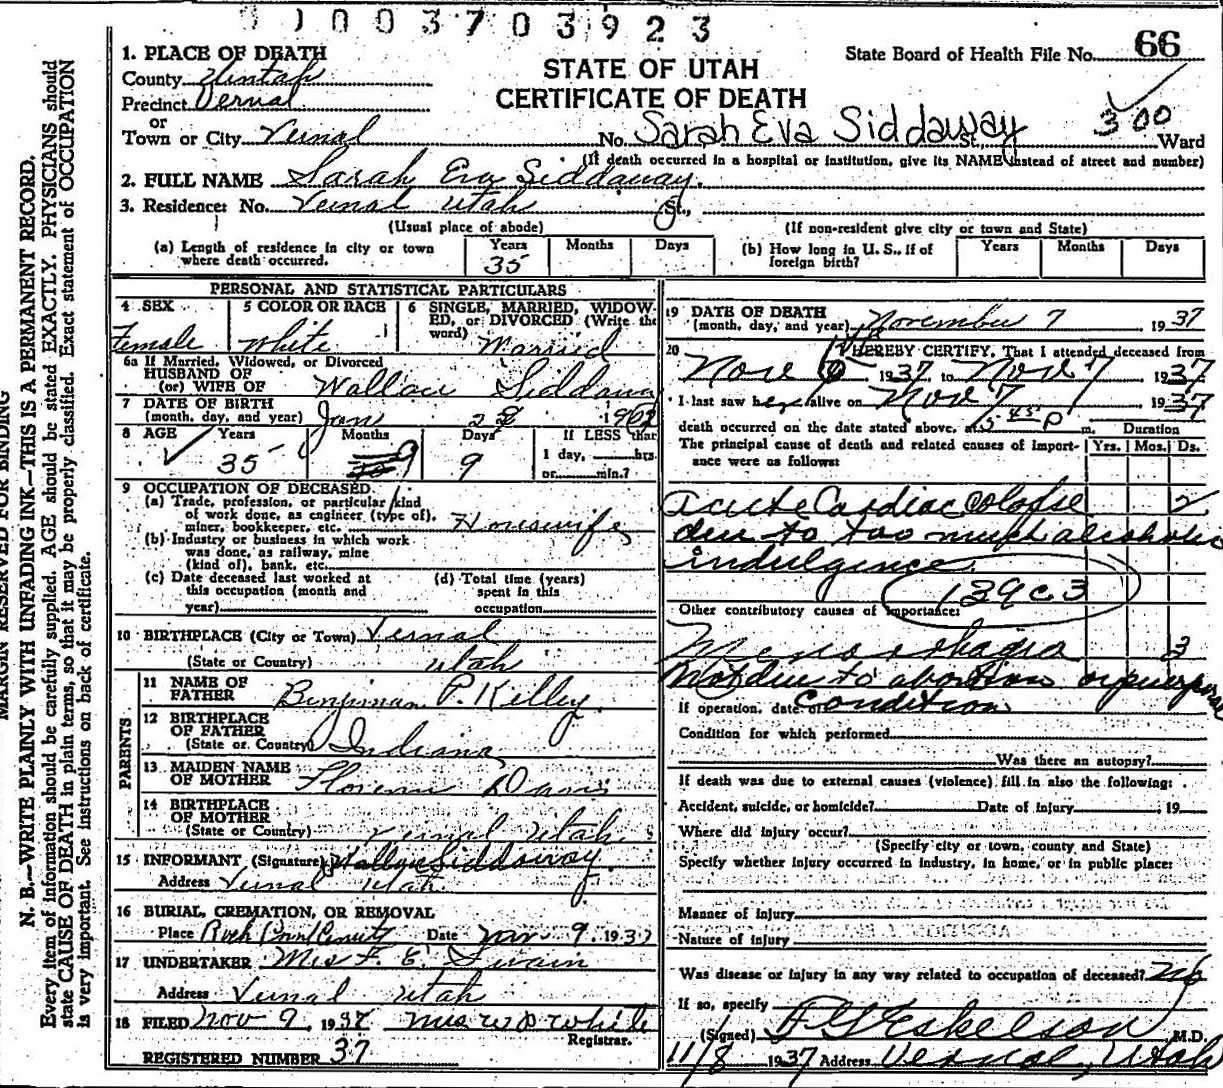 0100370 3923
1. PLACE OF DEATH
County Uintah
Precinct Vernal
or
Town or City Vernal
STATE OF UTAH
CERTIFICATE OF DEATH
State Board of Health File No. 66
No. Sarah Eva Siddaway St., 300 Ward
(If death occurred in a hospital or institution, give its NAME instead of street and number)
2. FULL NAME Sarah Eva Siddaway.
3. Residence: No. Vernal Utah St.,
(Usual place of abode)
(If non-resident give city or town and State)
(a) Length of residence in city or town where death occurred. Years 35 Months Days
(b) How long in U. S., if of foreign birth? Years Months Days
PERSONAL AND STATISTICAL PARTICULARS
4 SEX Female
5 COLOR OR RACE White
6 SINGLE, MARRIED, WIDOWED, or DIVORCED (Write the word) Married
6a If Married, Widowed, or Divorced
HUSBAND OF
(or) WIFE OF Wallace Siddaway
7 DATE OF BIRTH
(month, day, and year) Jan 28 1902
8 AGE Years 35 Months 9 Days 9
If LESS than
1 day, hrs.
or min.?
9 OCCUPATION OF DECEASED.
(a) Trade, profession, or particular kind
of work done, as engineer (type of),
miner, bookkeeper, etc. Housewife
(b) Industry or business in which work
was done, as railway, mine
(kind of), bank, etc.
(c) Date deceased last worked at
this occupation (month and
year)
(d) Total time (years)
spent in this
occupation
10 BIRTHPLACE (City or Town) Vernal
(State or Country) Utah
PARENTS
11 NAME OF
FATHER Benjiman P. Kelley.
12 BIRTHPLACE
OF FATHER
(State or Country) Indiana
13 MAIDEN NAME
OF MOTHER Florence Davis
14 BIRTHPLACE
OF MOTHER
(State or Country) Vernal Utah
15 INFORMANT (Signature) Wallace Siddaway
Address Vernal Utah.
16 BURIAL, CREMATION, OR REMOVAL
Place Rock Point Date Nov 9, 1937
17 UNDERTAKER Mrs F. E. Swain
Address Vernal Utah
18 FILED Nov 9, 1937 Mrs W D White
Registrar.
REGISTERED NUMBER 37
19 DATE OF DEATH
(month, day, and year) November 7 1937
20 I HEREBY CERTIFY, That I attended deceased from
Nov 6 1937, to Nov 7 1937
I last saw her alive on Nov 7 1937
death occurred on the date stated above, at 5-45 P m.
Duration
The principal cause of death and related causes of importance were as follows:
Yrs. Mos. Ds.
Acute Cardiac Colapse 2
due to too much alcoholic
indulgence.
139C3
Other contributory causes of importance:
Menorrhagia 3
Not due to abortion or puerperal
condition
If operation, date of
Condition for which performed
Was there an autopsy?
If death was due to external causes (violence) fill in also the following:
Accident, suicide, or homicide? Date of injury , 19
Where did injury occur?
(Specify city or town, county and State)
Specify whether injury occurred in industry, in home, or in public place:
Manner of injury
Nature of injury
Was disease or injury in any way related to occupation of deceased? No
If so, specify
(Signed) F G Eskelson M.D.
11/8 1937 Address Vernal, Utah
MARGIN RESERVED FOR BINDING
N. B.—WRITE PLAINLY WITH UNFADING INK—THIS IS A PERMANENT RECORD.
Every item of information should be carefully supplied. AGE should be stated EXACTLY. PHYSICIANS should
state CAUSE OF DEATH in plain terms, so that it may be properly classified. Exact statement of OCCUPATION
is very important. See instructions on back of certificate.